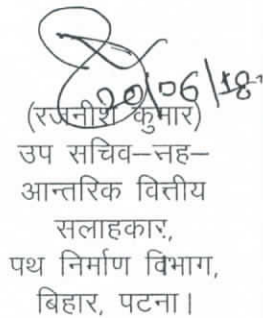 20/06/18
(रजनीश कुमार)
उप सचिव–सह–
आन्तरिक वित्तीय
सलाहकार,
पथ निर्माण विभाग,
बिहार, पटना।